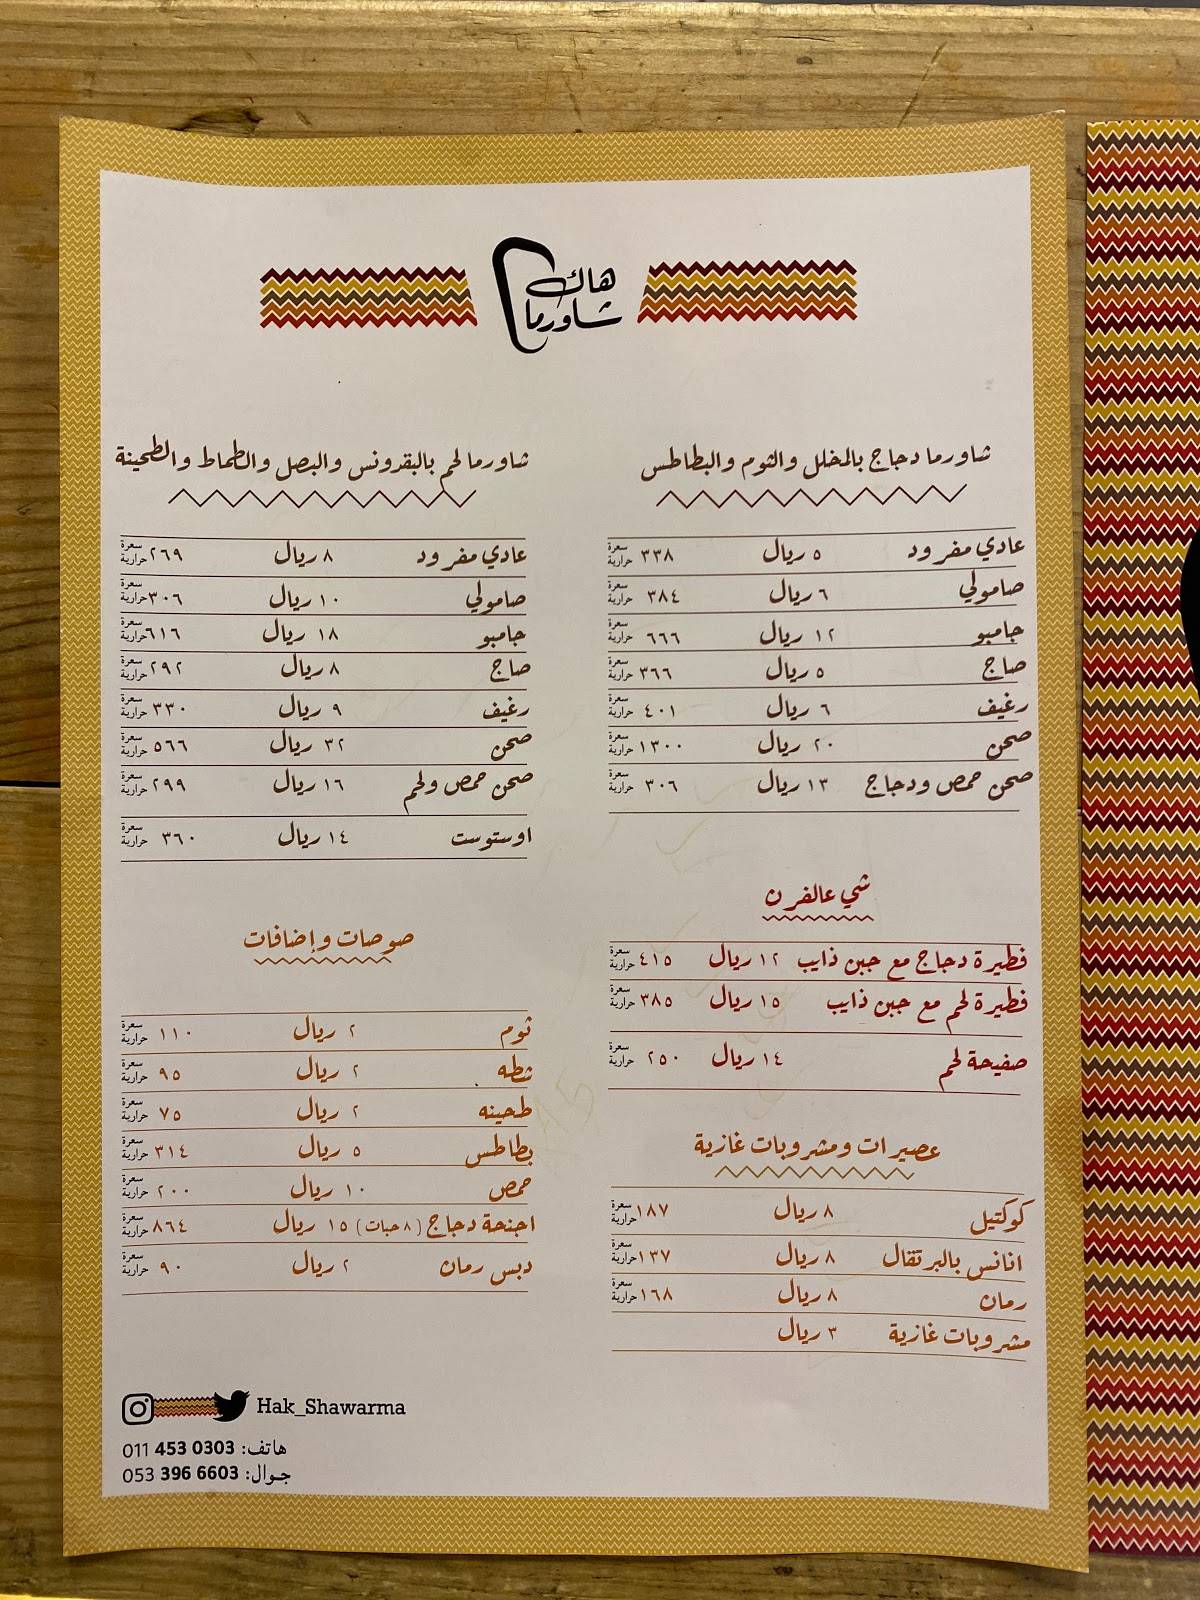 هاك
شاورما
شاورما دجاج بالمخلل والثوم والبطاطس
عادي مفرود ٥ ريال ٣٣٨ سعرة حرارية
صامولي ٦ ريال ٣٨٤ سعرة حرارية
جامبو ١٢ ريال ٦٦٦ سعرة حرارية
صاج ٥ ريال ٣٦٦ سعرة حرارية
رغيف ٦ ريال ٤٠١ سعرة حرارية
صحن ٢٠ ريال ١٣٠٠ سعرة حرارية
صحن حمص ودجاج ١٣ ريال ٣٠٦ سعرة حرارية
شي عالفرن
فطيرة دجاج مع جبن ذايب ١٢ ريال ٤١٥ سعرة حرارية
فطيرة لحم مع جبن ذايب ١٥ ريال ٣٨٥ سعرة حرارية
صفيحة لحم ١٤ ريال ٢٥٠ سعرة حرارية
عصيرات ومشروبات غازية
كوكتيل ٨ ريال ١٨٧ سعرة حرارية
انانس بالبرتقال ٨ ريال ١٣٧ سعرة حرارية
رمان ٨ ريال ١٦٨ سعرة حرارية
مشروبات غازية ٣ ريال
شاورما لحم بالبقدونس والبصل والطماط والطحينة
عادي مفرود ٨ ريال ٢٦٩ سعرة حرارية
صامولي ١٠ ريال ٣٠٦ سعرة حرارية
جامبو ١٨ ريال ٦١٦ سعرة حرارية
صاج ٨ ريال ٢٩٢ سعرة حرارية
رغيف ٩ ريال ٣٣٠ سعرة حرارية
صحن ٣٢ ريال ٥٦٦ سعرة حرارية
صحن حمص ولحم ١٦ ريال ٢٩٩ سعرة حرارية
اوستوست ١٤ ريال ٣٦٠ سعرة حرارية
صوصات وإضافات
ثوم ٢ ريال ١١٠ سعرة حرارية
شطه ٢ ريال ٩٥ سعرة حرارية
طحينه ٢ ريال ٧٥ سعرة حرارية
بطاطس ٥ ريال ٣١٤ سعرة حرارية
حمص ١٠ ريال ٢٠٠ سعرة حرارية
اجنحة دجاج (٨ حبات) ١٥ ريال ٨٦٤ سعرة حرارية
دبس رمان ٢ ريال ٩٠ سعرة حرارية
Hak_Shawarma
هاتف: 011 453 0303
جوال: 053 396 6603